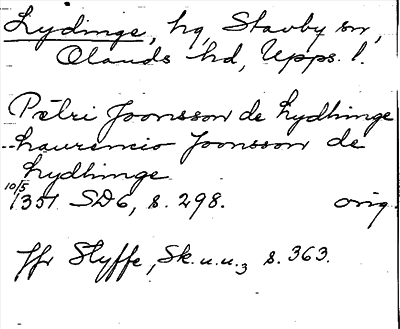 Lydinge, hg, Stavby sn,
Olands hd, Upps. l.
Petri Joonsson de Lydhinge
Laurencio Joonsson de
Lydhinge
10/5
1351 SD6, s. 298. orig.
Jfr Styffe, Sk.u.u.3 s. 363.